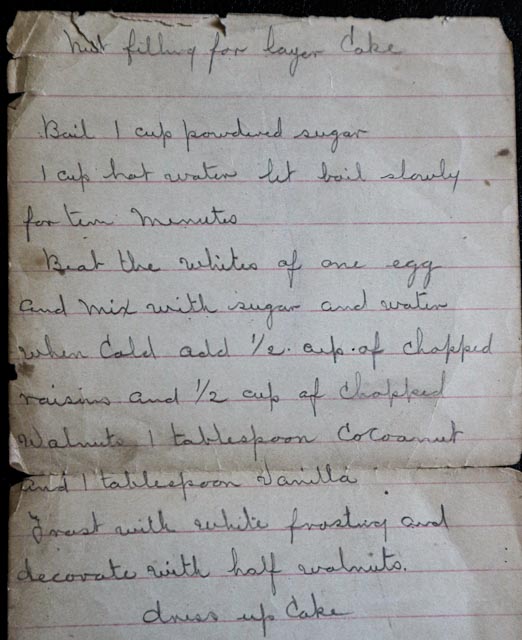 Nut filling for layer Cake
Boil 1 cup powdered sugar
1 cup hot water let boil slowly
for ten Minutes
Beat the whites of one egg
and mix with sugar and water
when Cold add 1/2 cup of chopped
raisins and 1/2 cup of chopped
walnuts 1 tablespoon Cocoanut
and 1 tablespoon Vanilla
Frost with white frosting and
decorate with half walnuts.
dress up Cake